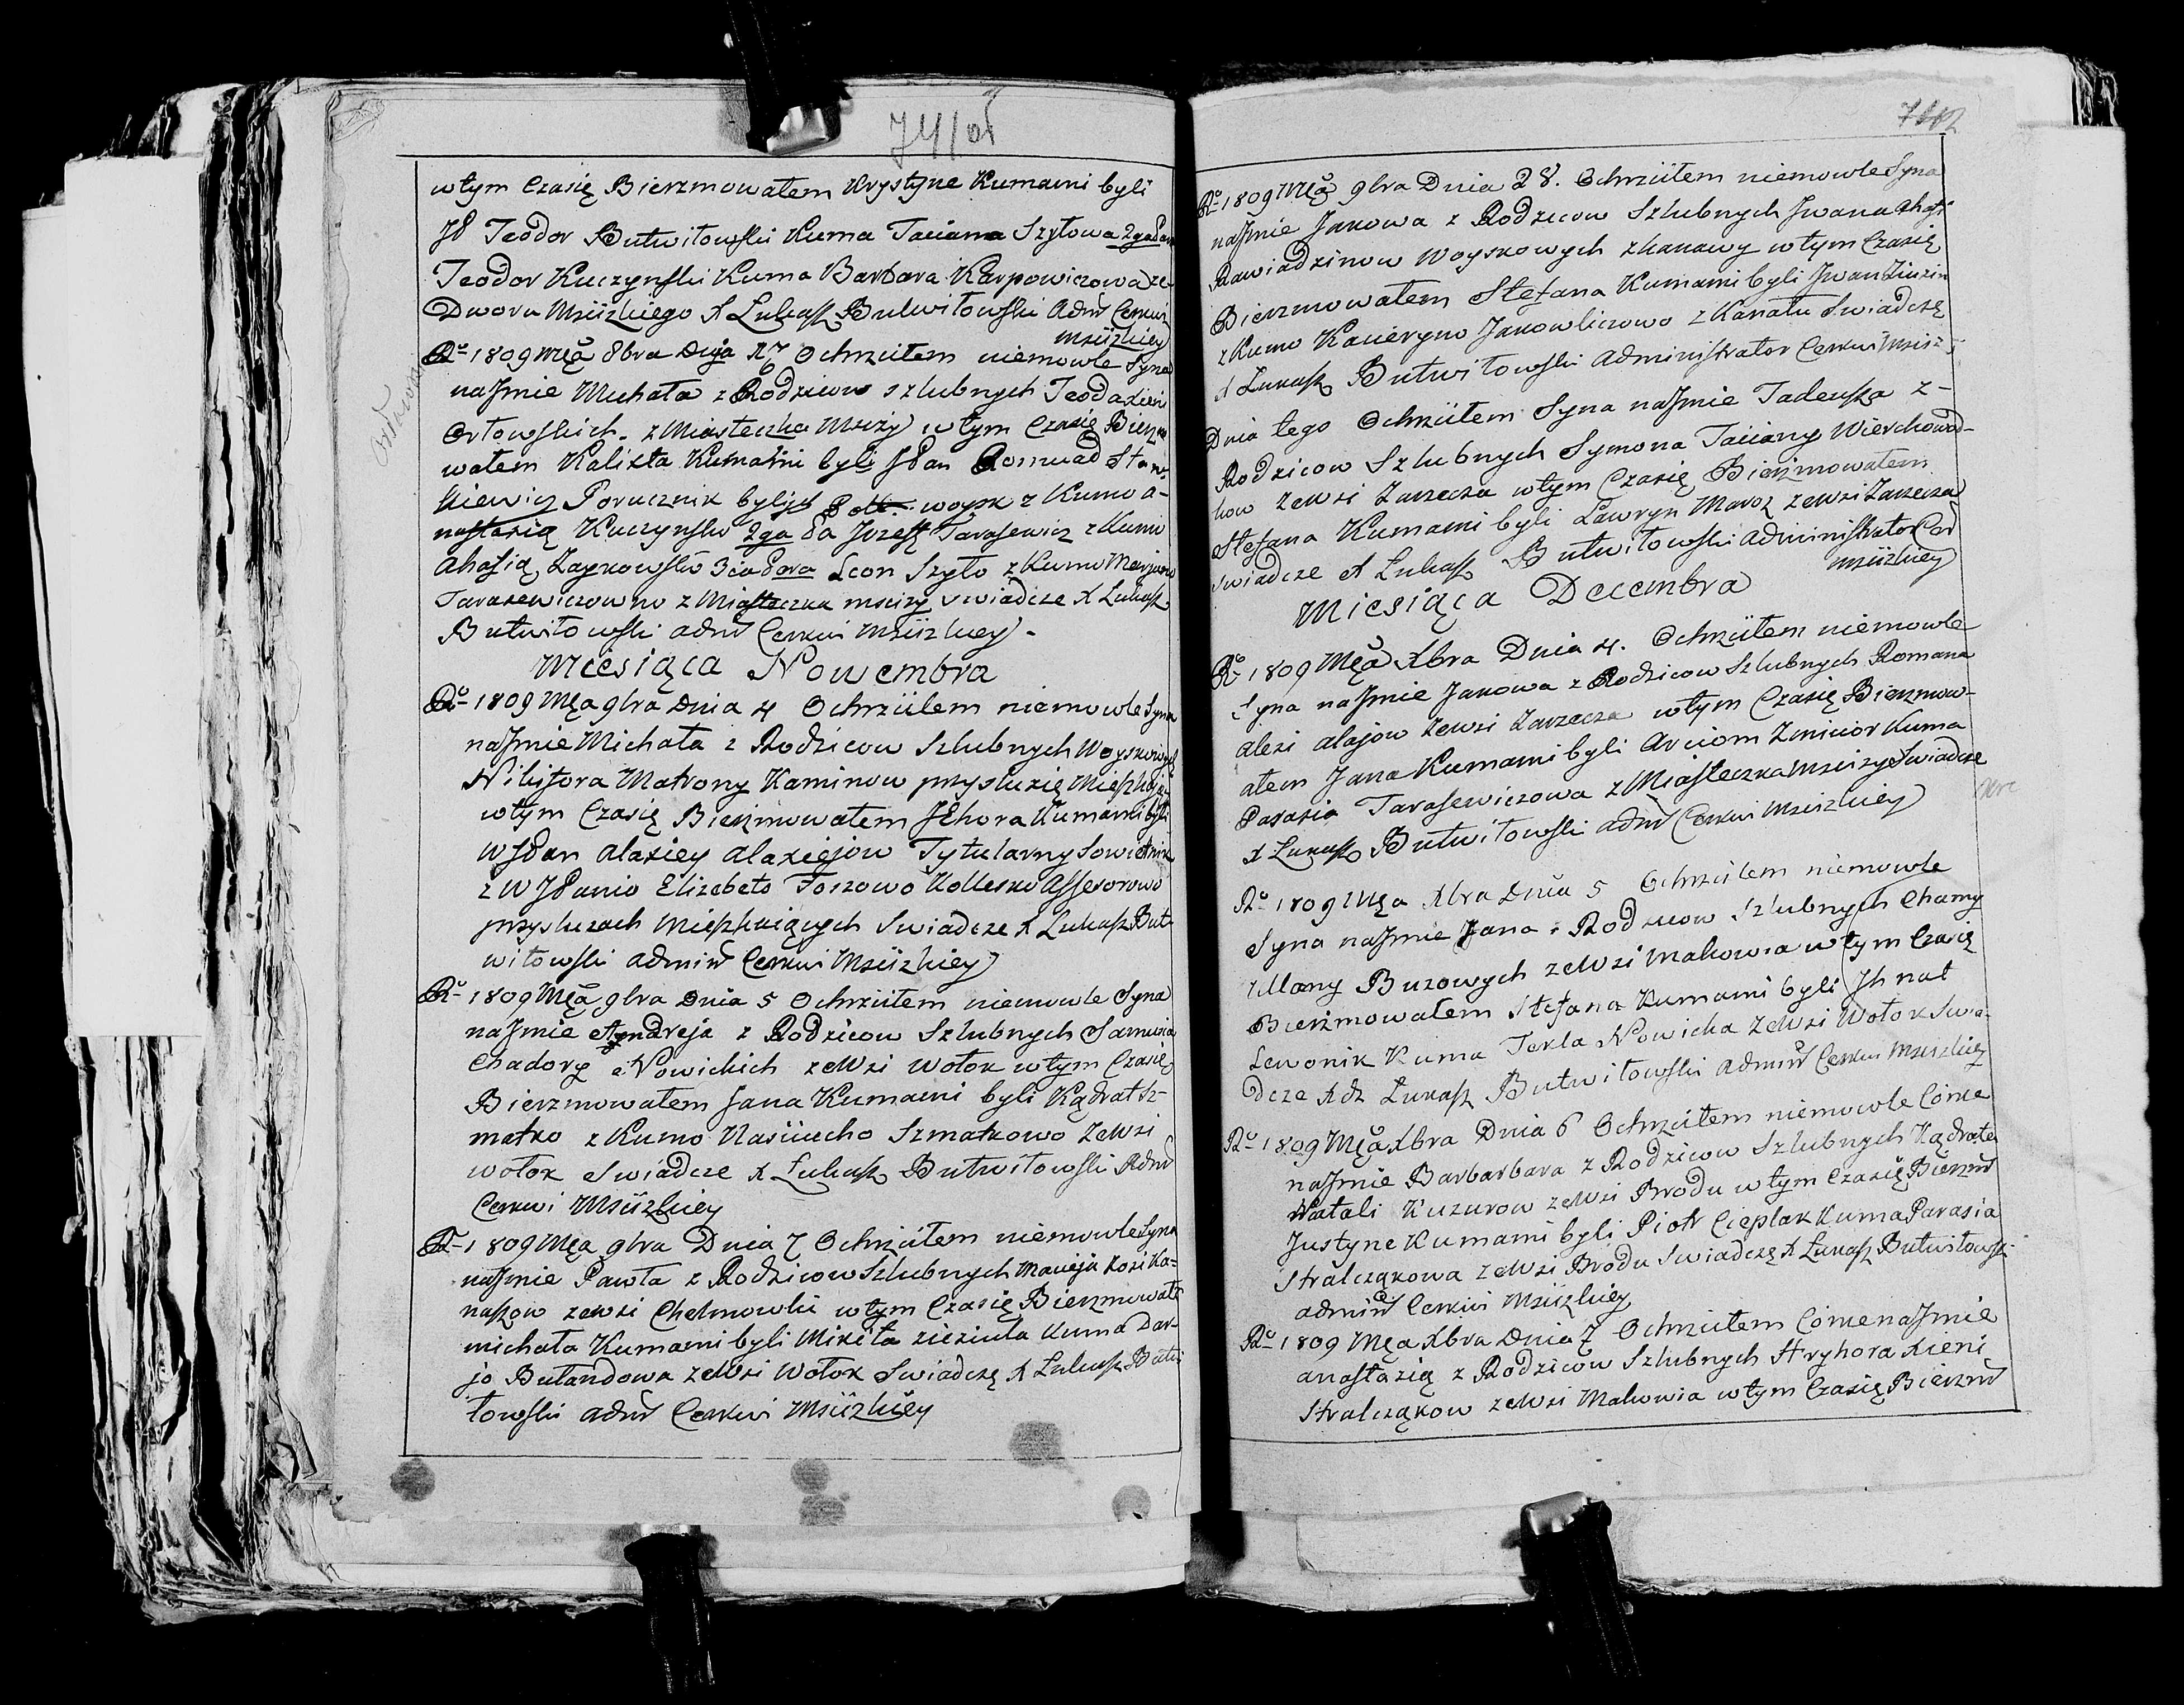 74/об
wtym Czasię Bierzmowałem Krystynę Kumami byli
JP Teodor Butwiłowski Kuma Taciana Szyłowa 2ga Para
Teodor Kuczynski Kuma Barbara Karpowiczowa ze
Dworu Mściżkiego X Łukasz Butwiłowski Admr Cerkwi
Mściżkiey
Ru 1809 Mca 8bra Dnia Ochrzciłem niemowle Syna
na Jmie Michała z Rodzicow szlubnych Teoda Xieni
Orłowskich z Miasteczka Mściży wtym Czasię Bierzmo
wałem Kalixta Kumami byli JPan Romuad Stan
kiewicz Porucznik byłych Pol. woysk z Kumo A-
nastazią Kuczynsko 2ga Pa Jozeff Tarasewicz z Kumo
Ahafią Zaykowsko 3cia Para Leon Szyło z Kumo Maryano
Tarasewiczowno z Miasteczka Mściży swiadcze X Łukasz
Butwiłowski admr Cerkwi Mściżkiey.
Miesiąca Nowembra
Ru 1809 Mca 9bra Dnia 4 Ochrzciłem niemowle Syna
na Jmie Michała z Rodzicow Szlubnych Woyskowych
Nikifora Matrony Kaminow przysluzię Mieszkaią
wtym Czasię Bierzmowałem JEhora Kumami byli
WJPan Alaxiey Alaxiejow Tytularny Sowietnik
z WJPanio Elizabeto Foszowo Kollesko Assesorowo
przysluzach Mieszkaiących Swiadcze X Łukasz But-
wiłowski admin Cerkwi Mściżkiey
Ru 1809 Mca 9bra Dnia 5 Ochrzciłem niemowle Syna
na Jmie Andreja z Rodzicow Szlubnych Samuia
Chadory Nowickich zeWsi Wołok wtym Czasię
Bierzmowałem Jana Kumami byli Kądrat Sz-
matko z Kumo Nasciucho Szmatkowo zeWsi
Wołok Swiadcze X Łukasz Butwiłowski Admr
Cerkwi Mściżkiey
Ru 1809 Mca 9bra Dnia 7 Ochrzciłem niemowle Syna
na Jmie Pawła z Rodzicow Szlubnych Macieja Rozi Ka-
naszow zeWsi Chelmowki wtym Czasię Bierzmowałe
michała Kumami byli Mikita zieziula Kuma Dar-
jo Butandowa zeWsi Wołok Swiadczę X Łukasz Butwi
towski admr Cerkwi Mściżkiey
Ru 1809 Mca 9bra Dnia 28. Ochrzciłem niemowle Syna
na Jmie Jakowa z Rodzicow Szlubnych Jwana Ahafi
Dawiadzinow Woyskowych zkanawy wtym Czasię
Bierzmowałem Stefana Kumami byli Jwan Ziuzin
z Kumo Kacieryno Jakowliczowo z Kanału Swiadczę
X Łukasz Butwiłowski Administrator Cerkwi Msciz
Dnia tego Ochrzciłem Syna na Jmie Tadeusza z-
Rodzicow Szlubnych Symona Taciany Wierchowod-
kow zeWsi Zarzecza wtym Czasię Bierzmowałem
Stefana Kumami byli Ławryn Maroz zeWsi Zarzecza
swiadcze X Łukasz Butwiłowski Administrator Cer
mściżkiey
Miesiąca Decembra
Ru 1809 Mca Xbra Dnia 4. Ochrzciłem niemowle
Syna na Jmie Jakowa z Rodzicow Szlubnych Romana
Alexi Alajow zeWsi Zarzecza wtym Czasię Bierzmow-
ałem Jana Kumami byli Arciom Zmicior Kuma
Parasia Tarasewiczowa z Miasteczka Mściży Swiadcze
X Łukasz Butwiłowski admr Cerkwi Mściżkiey
Ru 1809 Mca Xbra Dnia 5 Ochrzciłem niemowle
Syna na Jmie Jana z Rodzicow Szlubnych Chamy
Ullany Buzowych zeWsi Makowia wtym Czasię
Bierzmowałem Stefana Kumami byli Jhnat
Lewonik Kuma Tekla Nowicka zeWsi Wołok Swia-
dcze Xdz Łukasz Butwiłowski Admin Cerkwi Mściżkiey
Ru 1809 Mca Xbra Dnia 6 Ochrzciłem niemowle Córke
na Jmie Barbarbara z Rodzicow Szlubnych Kądrata
Natali Kuzurow zeWsi Brodu wtym Czasię Bierzm
Justyne Kumami byli Piotr Cieplak Kuma Parasia
Stralcząkowa zeWsi Brodu Swiadczę X Łukasz Butwiłowski
admin Cerkwi Mściżkiey
Ru 1809 Mca Xbra Dnia 7 Ochrzciłem Córke na Jmie
anastazią z Rodzicow Szlubnych Hryhora Xieni
Stralcząkow zeWsi Makowia wtym Czasię Bierzm